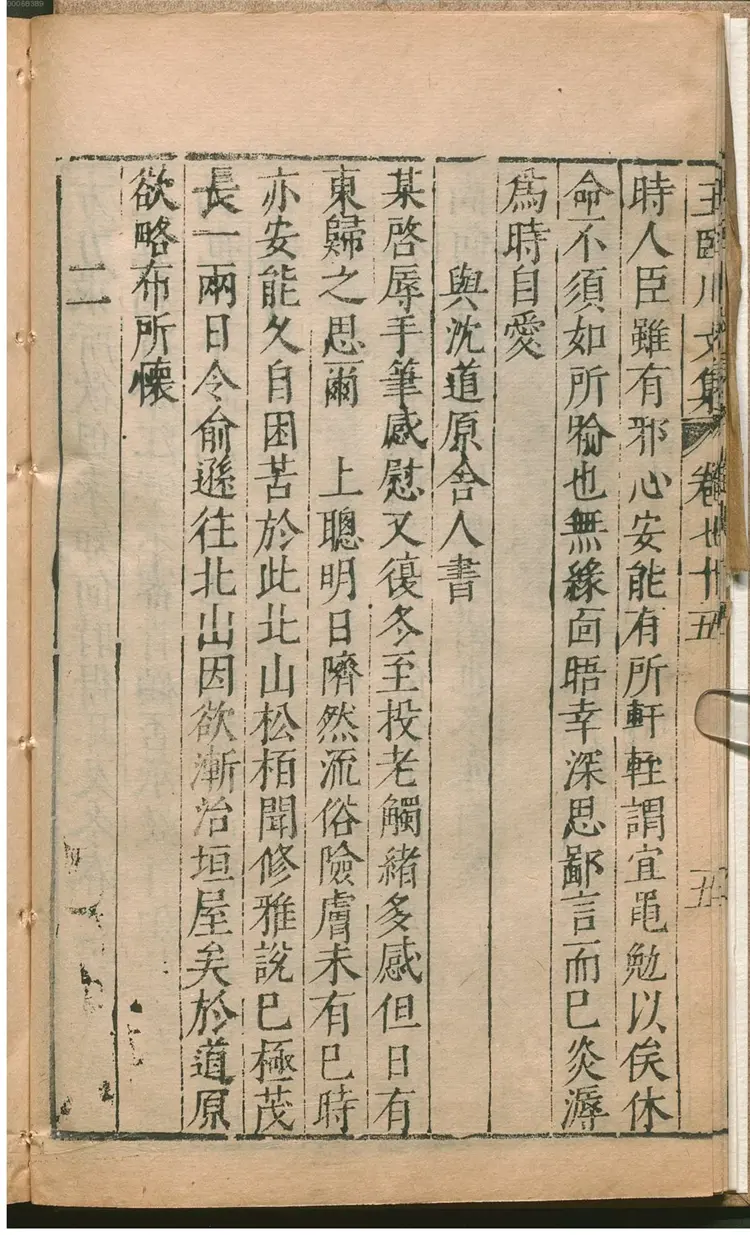 00068389
王臨川文集 卷七十五 五
時人臣雖有邪心安能有所軒輊謂宜黽勉以俟休
命不須如所喻也無緣面晤幸深思鄙言而已炎溽
爲時自愛
與沈道原舍人書
某啓辱手筆感慰又復冬至投老觸緒多感但日有
東歸之思爾 上聰明日隮然流俗險膚未有已時
亦安能久自困苦於此北山松栢聞修雅說已極茂
長一兩日令俞遜往北山因欲漸治垣屋矣於道原
欲略布所懷
二